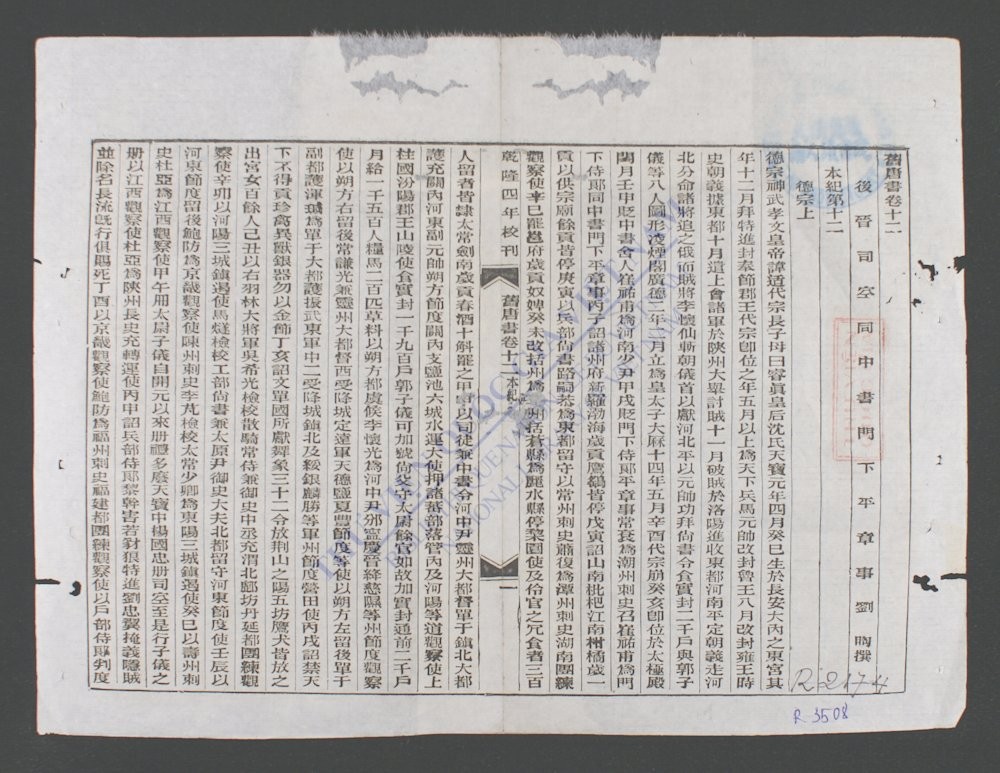 舊唐書卷十二
後晉司空同中書門下平章事劉昫撰
本紀第十二
德宗上
德宗神武孝文皇帝諱适代宗長子母曰睿眞皇后沈氏天寶元年四月癸巳生於長安大內之東宮其
年十二月拜特進封奉節郡王代宗卽位之年五月以上爲天下兵馬元帥改封魯王八月改封雍王時
史朝義據東都十月遣上會諸軍於陝州大舉討賊十一月破賊於洛陽進收東都河南平定朝義走河
北分命諸將追之俄而賊將李懷仙斬朝儀首以獻河北平以元帥功拜尙書令食實封二千戶與郭子
儀等八人圖形淩煙閣廣德二年二月立爲皇太子大曆十四年五月辛酉代宗崩癸亥卽位於太極殿
閏月壬申貶中書舍人崔祐甫爲河南少尹甲戌貶門下侍郞平章事常袞爲潮州刺史召崔祐甫爲門
下侍郞同中書門下平章事丙子詔諸州府新羅渤海歲貢鷹鷂皆停戊寅詔山南枇杷江南柑橘歲一
貢以供宗廟餘貢皆停庚寅以兵部尙書路嗣恭爲東都留守以常州刺史蕭復爲潭州刺史湖南團練
觀察使辛巳罷邕府歲貢奴婢癸未改括州爲處州括蒼縣爲麗水縣停梨園使及伶官之冗食者三百
乾隆四年校刊
舊唐書卷十二 本紀
一
人留者皆隸太常劍南歲貢春酒十斛罷之甲申以司徒兼中書令河中尹靈州大都督單于鎭北大都
護充關內河東副元帥朔方節度關內支鹽池六城水運大使押諸蕃部落管內及河陽等道觀察使上
柱國汾陽郡王山陵使食實封一千九百戶郭子儀可加號尙父守太尉餘官如故加實封通前二千戶
月給一千五百人糧馬二百匹草料以朔方都虞候李懷光爲河中尹邠寧慶晉絳慈隰等州節度觀察
使以朔方右留後常謙光兼靈州大都督西受降城定遠軍天德鹽夏豐節度等使以朔方左留後單于
副都護渾瑊爲單于大都護振武東軍中二受降城鎭北及綏銀麟勝等軍州節度營田使丙戌詔禁天
下不得貢珍禽異獸銀器勿以金飾丁亥詔文單國所獻舞象三十二令放荆山之陽五坊鷹犬皆放之
出宮女百餘人己丑以右羽林大將軍吳希光檢校散騎常侍兼御史中丞充渭北鄜坊丹延都團練觀
察使辛卯以河陽三城鎭遏使馬燧檢校工部尙書兼太原尹御史大夫北都留守河東節度使壬辰以
河東節度留後鮑防爲京畿觀察使陳州刺史李芃檢校太常少卿爲東陽三城鎭遏使癸巳以壽州刺
史杜亞爲江西觀察使甲午册太尉子儀自開元以來册禮多廢天寶中楊國忠册司空至是行子儀之
册以江西觀察使杜亞爲陝州長史充轉運使丙申詔兵部侍郞黎幹害若豺狼特進劉忠翼掩義隱賊
並除名長流旣行俱賜死丁酉以京畿觀察使鮑防爲福州刺史福建都團練觀察使以戶部侍郞判度
R.2174
R.3508